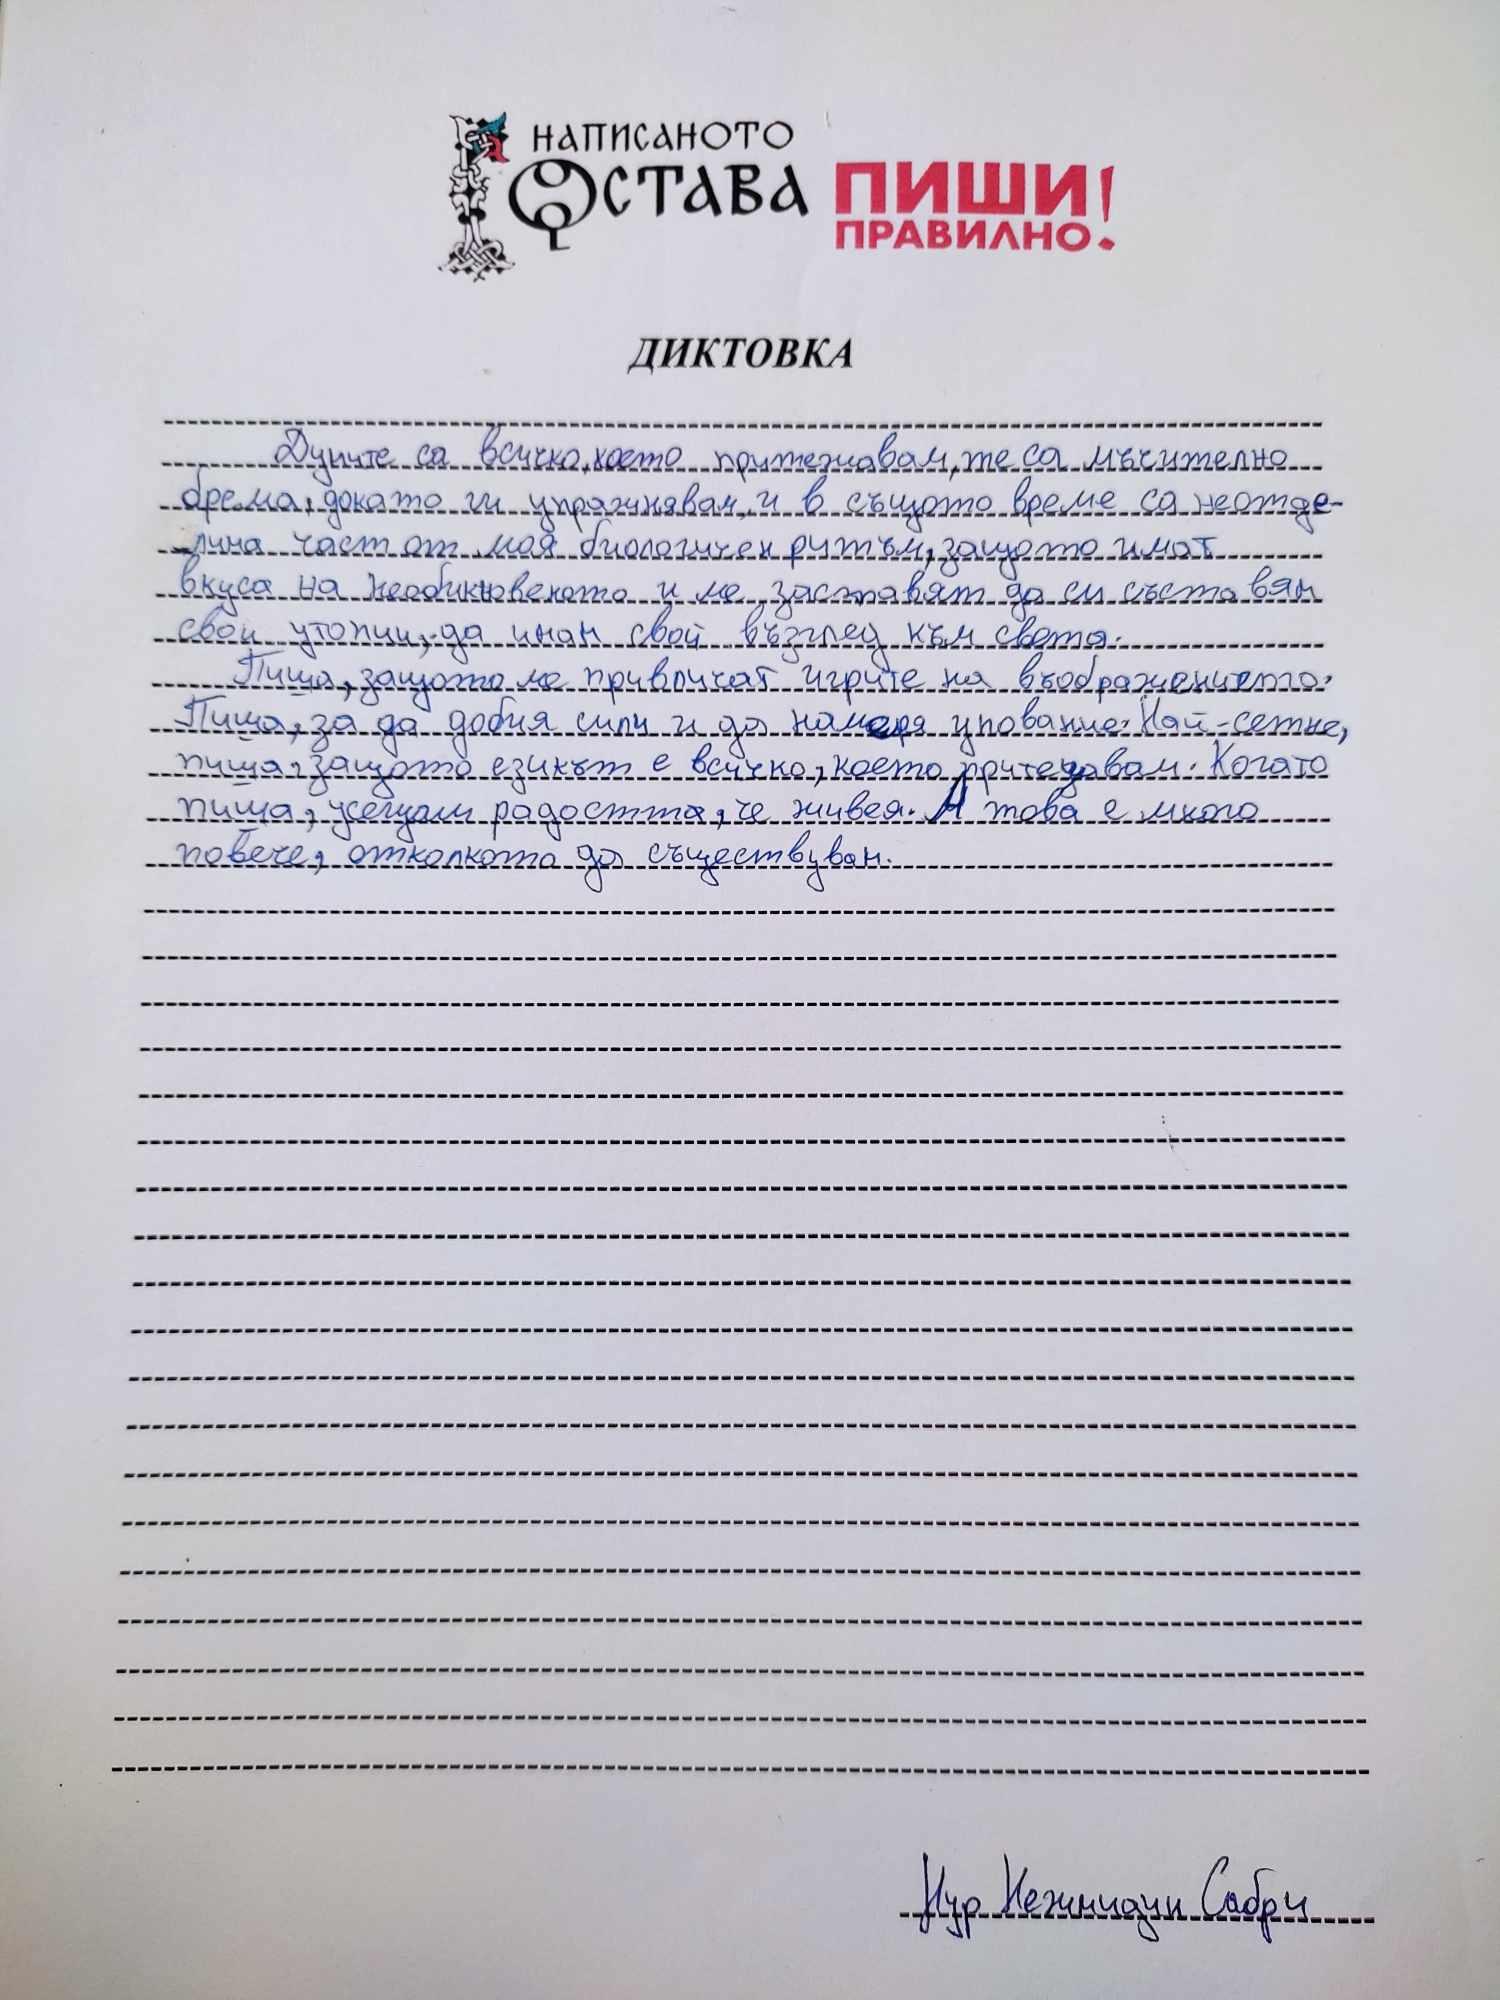 НАПИСАНОТО
ОСТАВА
ПИШИ!
ПРАВИЛНО!
ДИКТОВКА
Думите са всичко, което притежавам, те са мъчително
бреме, докато ги упражнявам, и в същото време са неотде-
лима част от моя биологичен ритъм, защото имат
вкуса на необикновеното и ме заставят да си съставям
свои утопии, да имам свой възглед към света.
Пиша, защото ме привличат игрите на въображението.
Пиша, за да добия сили и да намеря упование. Най-сетне,
пиша, защото езикът е всичко, което притежавам. Когато
пиша, усещам радостта, че живея. А това е много
повече, отколкото да съществувам.
Нур Нежмидин Сабри